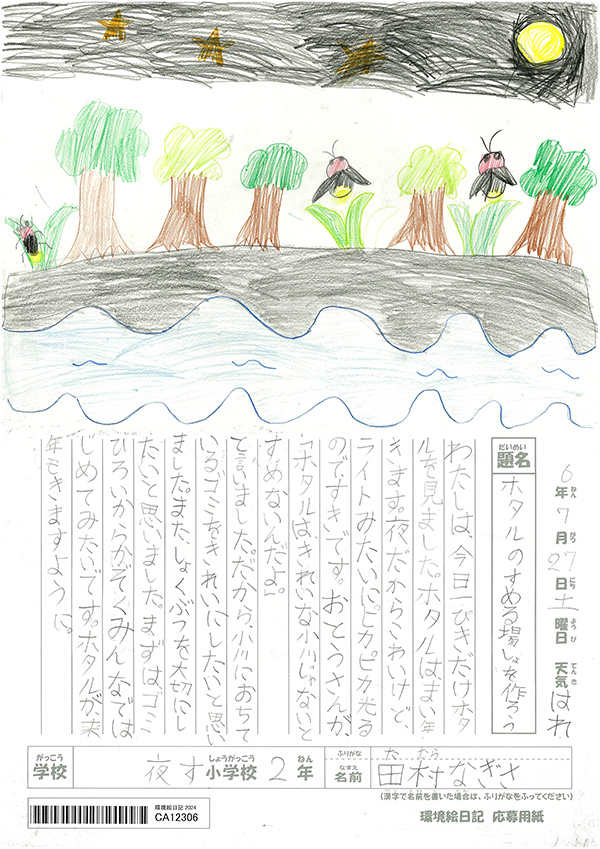 6年ねん7月がつ27日にち土曜日ようび 天気てんきはれ
題名だいめい ホタルのすめる場しょを作ろう
わたしは、今日一ぴきだけホタ
ルを見ました。ホタルは、まい年
きます。夜だからこわいけど、
ライトみたいにピカピカ光る
のですきです。おとうさんが、
「ホタルは、きれいな小川じゃないと
すめないんだよ。」
て言いました。だから、小川におちて
いるゴミをきれいにしたいと思い
ました。また、しょくぶつを大切にし
たいと思いました。まずは、ゴミ
ひろいからかぞくみんなでは
じめてみたいです。ホタルが、来
年もきますように。
学校がっこう 夜す小学校しょうがっこう 2年ねん
ふりがな た むら
名前なまえ 田村なぎさ
(漢字で名前を書いた場合は、ふりがなをふってください)
環境絵日記 2024
CA12306
環境絵日記 応募用紙